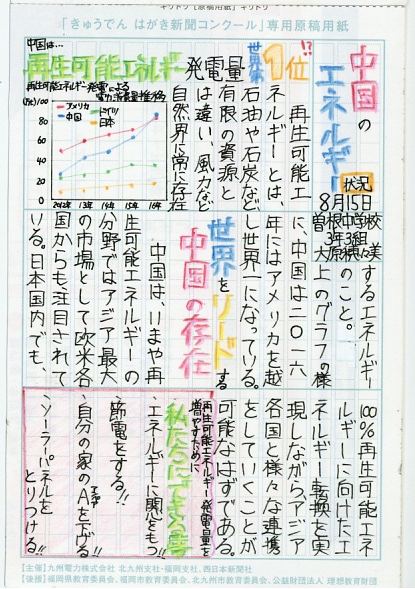 「きゅうでん はがき新聞コンクール」専用原稿用紙
中国は…
再生可能エネルギー発電量世界第1位!?
中国の
エネルギー
状況
8月15日
曽根中学校
3年3組
再生可能エネルギー発電による
電力消費量推移
100
80
60
40
20
0
アメリカ
中国
ドイツ
日本
2012年
13年
14年
15年
16年
再生可能エ
ネルギーとは、
石油や石炭など
有限の資源と
は違い、風力など
自然界に常に存在
するエネルギー
のこと。
上のグラフの様
に、中国は二〇一六
年にはアメリカを越
し世界一になっている。
世界をリードする
中国の存在
中国は、いまや再
生可能エネルギーの
分野ではアジア最大
の市場として欧米各
国からも注目されて
いる。日本国内でも、
100%再生可能エネ
ルギーに向けたエ
ネルギー転換を実
現しながら、アジア
各国と様々な連携
をしていくことが
可能なはずである。
再生可能エネルギー発電量を
増やすために
私たちにできる事
・エネルギーに関心をもつ!!
・節電をする!!
・自分の家のAを下げる!!
アンペア
・ソーラーパネルを
とりつける!!
【主催】九州電力株式会社 北九州支社・福岡支社、西日本新聞社
【後援】福岡県教育委員会、福岡市教育委員会、北九州市教育委員会、公益財団法人 理想教育財団